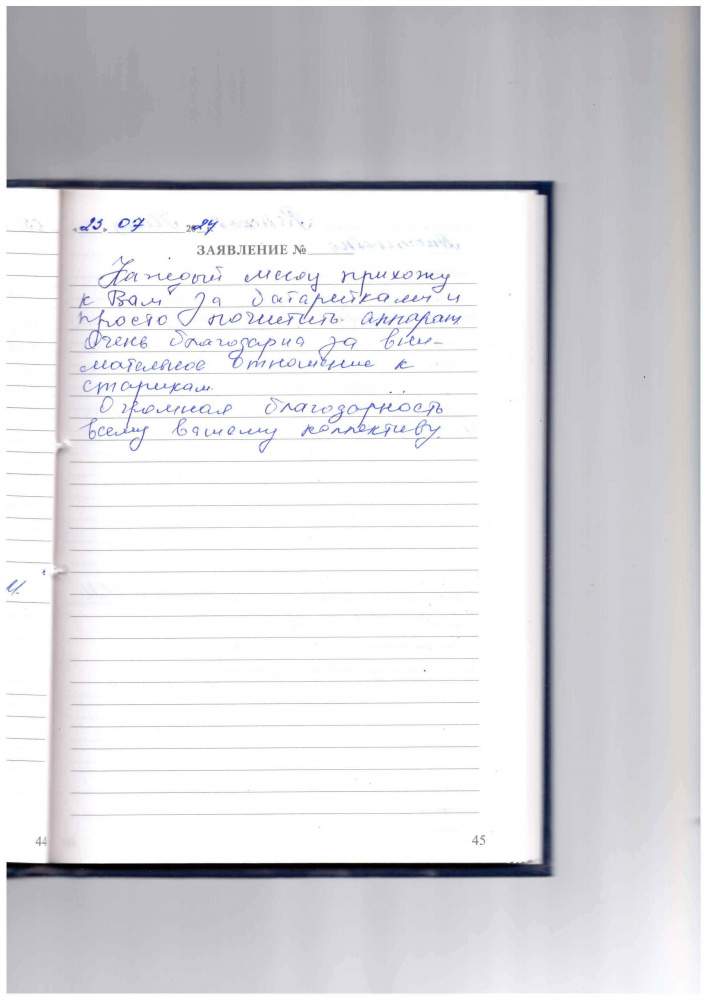 «23» 07 2024
ЗАЯВЛЕНИЕ №
Каждый месяц прихожу
к Вам за батарейками и
просто почистить аппарат
Очень благодарна за вни-
мательное отношение к
старикам.
Огромная благодарность
всему вашему коллективу.
44
45